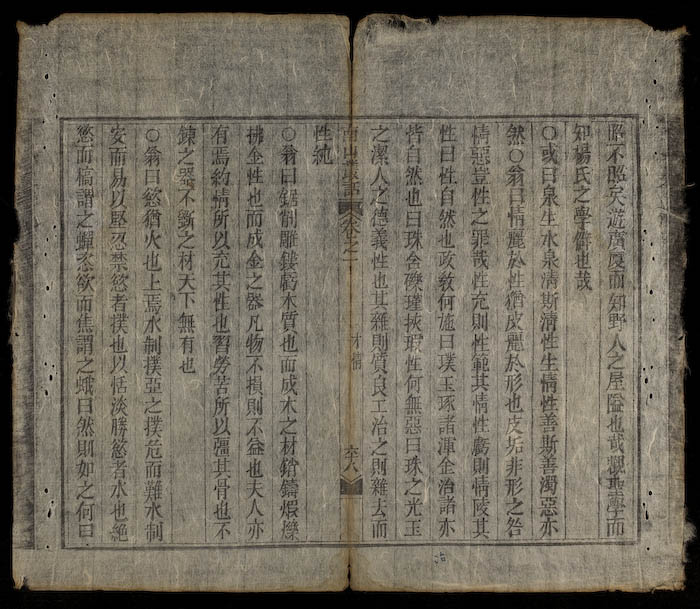 昭不昭矣遊廣廈而知野人之屋隘也哉觀聖學而
知楊氏之學僻也哉
○或曰泉生水泉清斯清性生情性善斯善濁惡亦
然○翁曰情麗於性猶皮麗於形也皮垢非形之咎
情惡豈性之罪哉性充則性範其情性虧則情陵其
性曰性自然也政教何施曰璞玉琢諸渾金治諸亦
皆自然也曰珠含礫瑾挾瑕性何無惡曰珠之光玉
之潔人之德義性也其雜則質良工治之則雜去而
卷之一
才情
性純
○翁曰鋸制雕鏤虧木質也而成木之材鎗鑄煆爍
拂金性也而成金之器凡物不損則不益也夫人亦
有焉約情所以充其性也習勞苦所以彊其骨也不
鍊之器不斲之材天下無有也
○翁曰慾猶火也上焉水制撲亞之撲危而難水制
安而易以堅忍禁慾者撲也以恬淡勝慾者水也絕
慾而槁謂之蟬恣欲而焦謂之蛾曰然則如之何曰